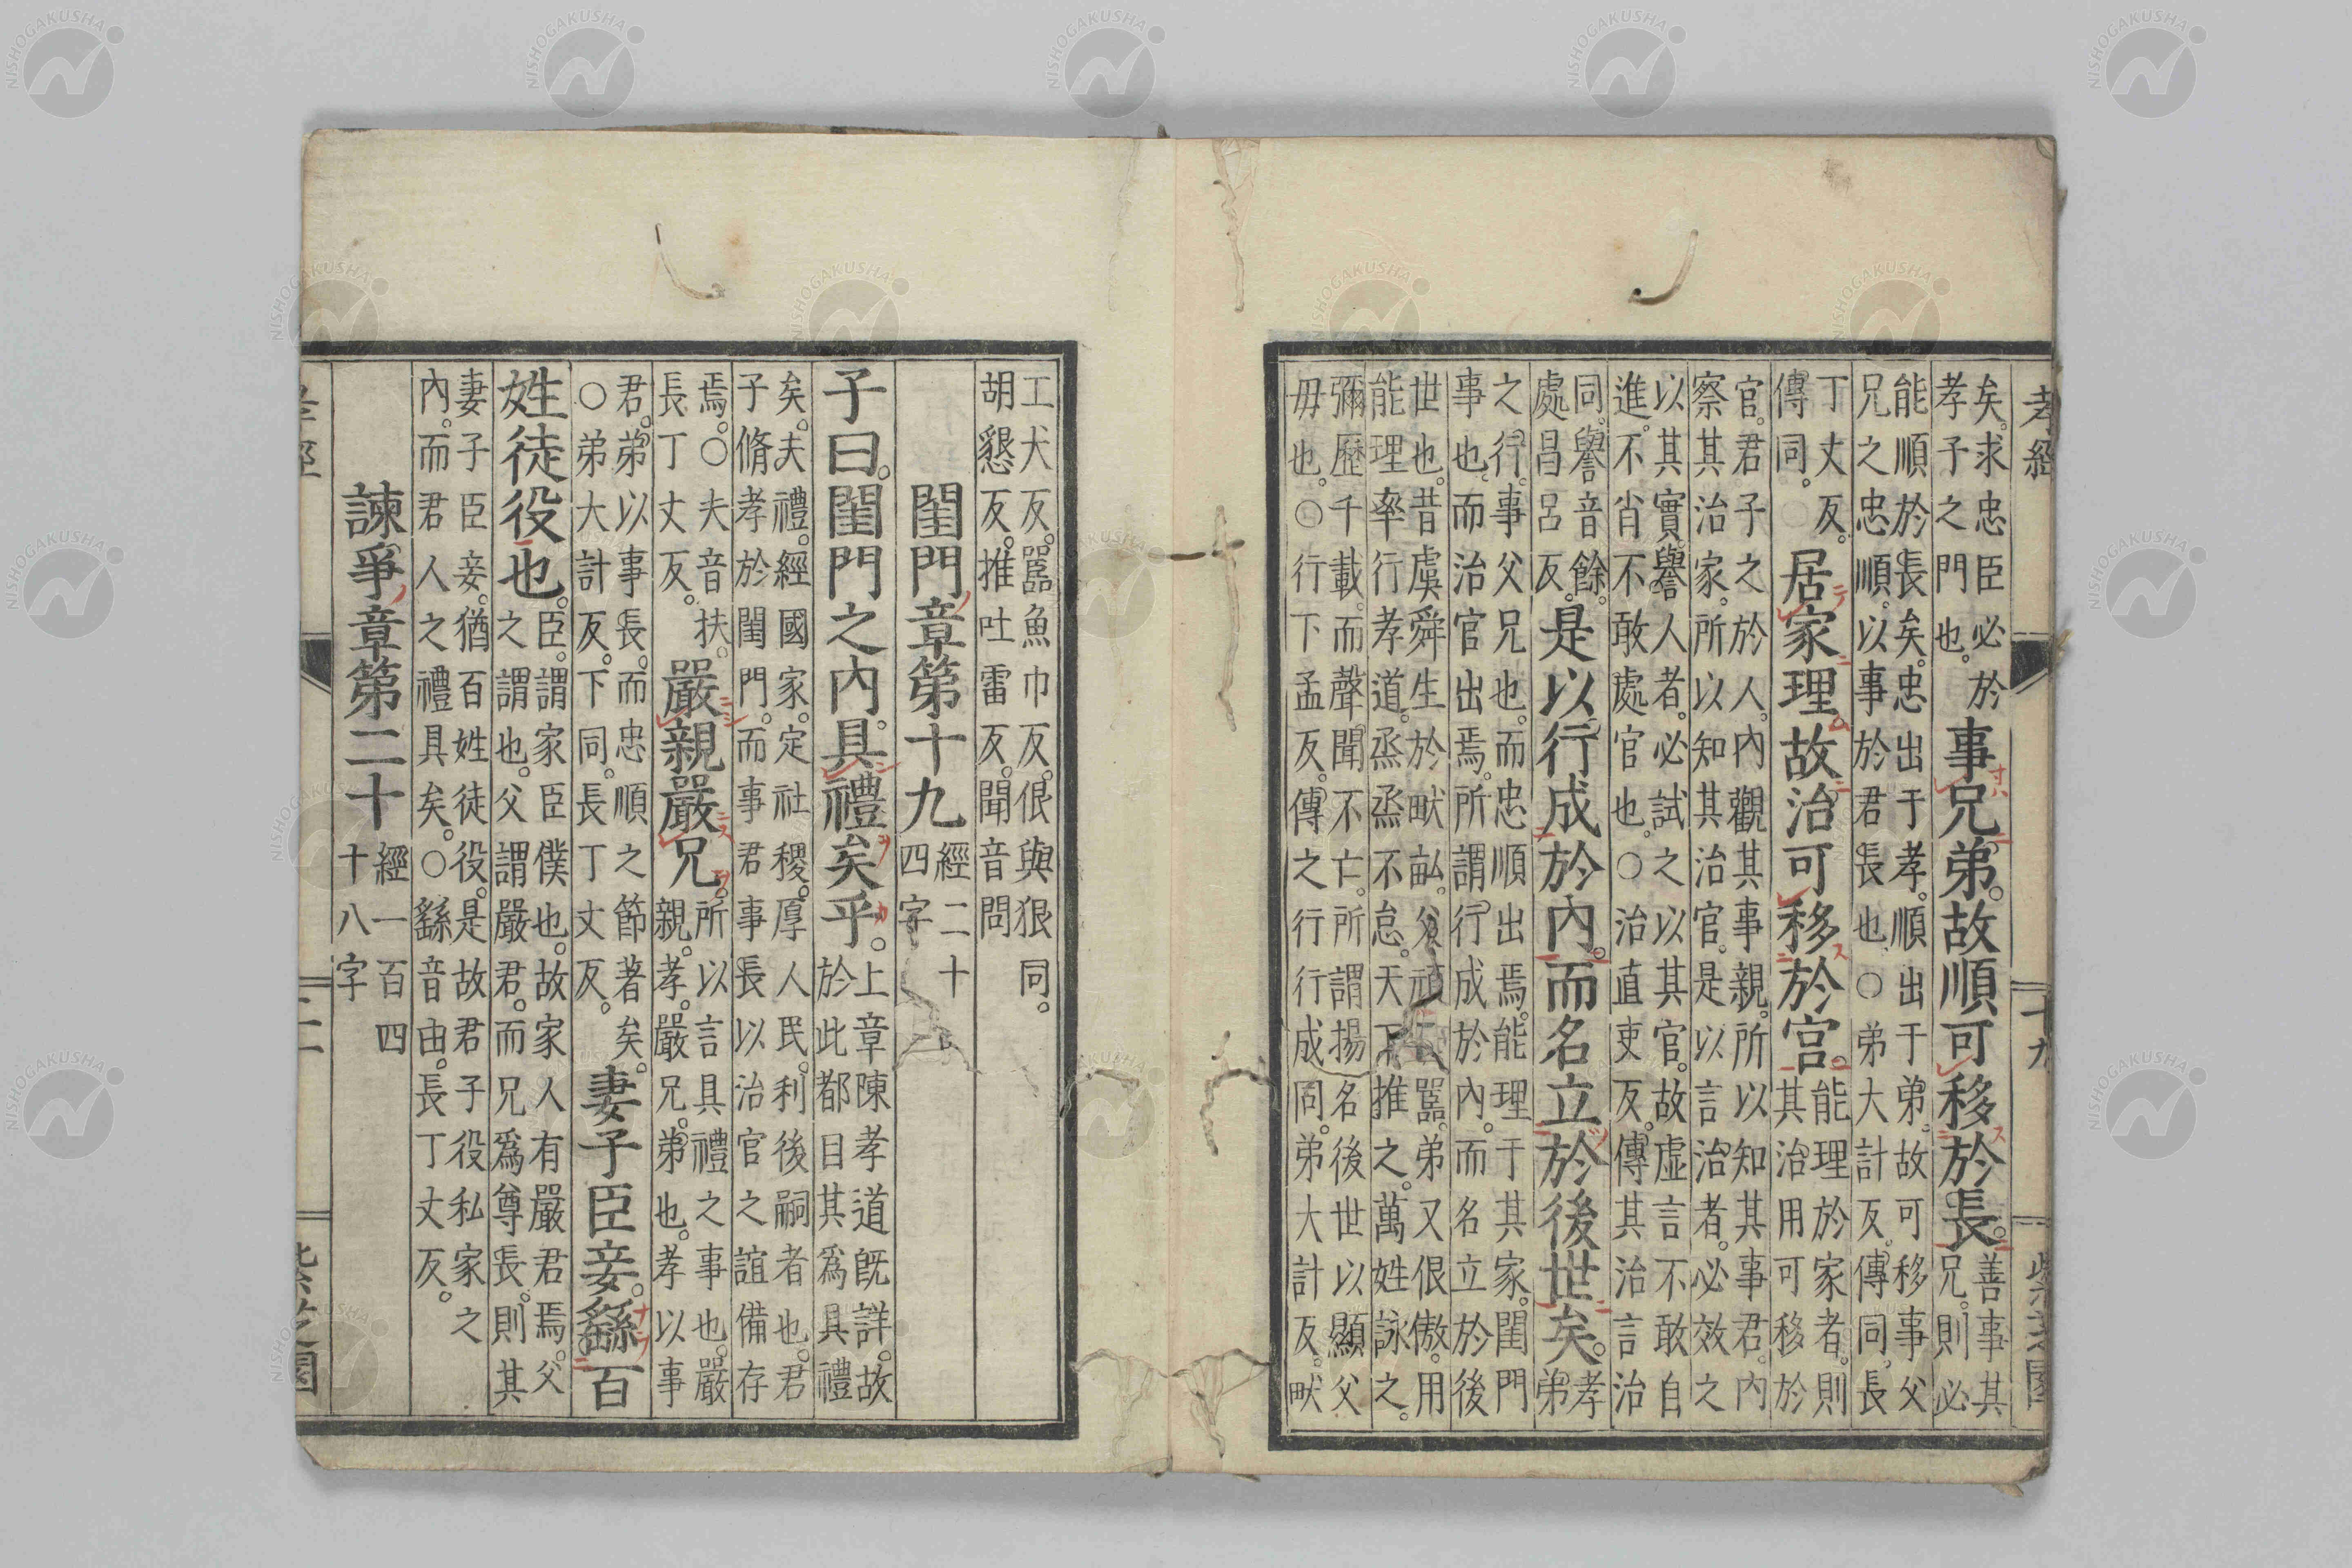 孝經　十九　紫芝園
矣。求忠臣必於
孝子之門也。
事兄弟。故順可移於長。
善事其
兄。則必
能順於長矣。忠出于孝。順出于弟。故可移事父
兄之忠順。以事於君長也。○弟大計反。傳同。長
丁丈反。
傳同。
居家理。故治可移於官。
能理於家者。則
其治用可移於
官。君子之於人。內觀其事親。所以知其事君。內
察其治家。所以知其治官。是以言治者。必效之
以其實。譽人者。必試之以其官。故虛言不敢自
進。不肖不敢處官也。○治直吏反。傳其治言治
同。譽音餘。
處昌呂反。
是以行成於內。而名立於後世矣。
孝
弟
之行。事父兄也。而忠順出焉。能理于其家。閨門
事也。而治官出焉。所謂行成於內。而名立於後
世也。昔虞舜生於畎畝。父頑嚚。弟又佷傲。用
能理率行孝道。烝烝不怠。天下推之。萬姓詠之。
彌歷千載。而聲聞不亡。所謂揚名後世。以顯父
毋也。○行下孟反。傳之行行成同。弟大計反。畎
工犬反。嚚魚巾反。佷與狠同。
胡懇反。推吐雷反。聞音問
閨門章第十九
經二十
四字
子曰。閨門之內。具禮矣乎。
上章陳孝道既詳。故
於此都目其爲具禮
矣。夫禮。經國家。定社稷。厚人民。利後嗣者也。君
子脩孝於閨門。而事君事長以治官之誼備存
焉。○夫音扶。
長丁丈反。
嚴親嚴兄。
所以言具禮之事也。嚴
親。孝。嚴兄。弟也。孝以事
君。弟以事長。而忠順之節著矣。
○弟大計反。下同。長丁丈反。
妻子臣妾。繇百
姓徒役也。
臣。謂家臣僕也。故家人有嚴君焉。父
之謂也。父謂嚴君。而兄爲尊長。則其
妻子臣妾。猶百姓徒役。是故君子役私家之
內。而君人之禮具矣。○繇音由。長丁丈反。
諫爭章第二十
經一百四
十八字